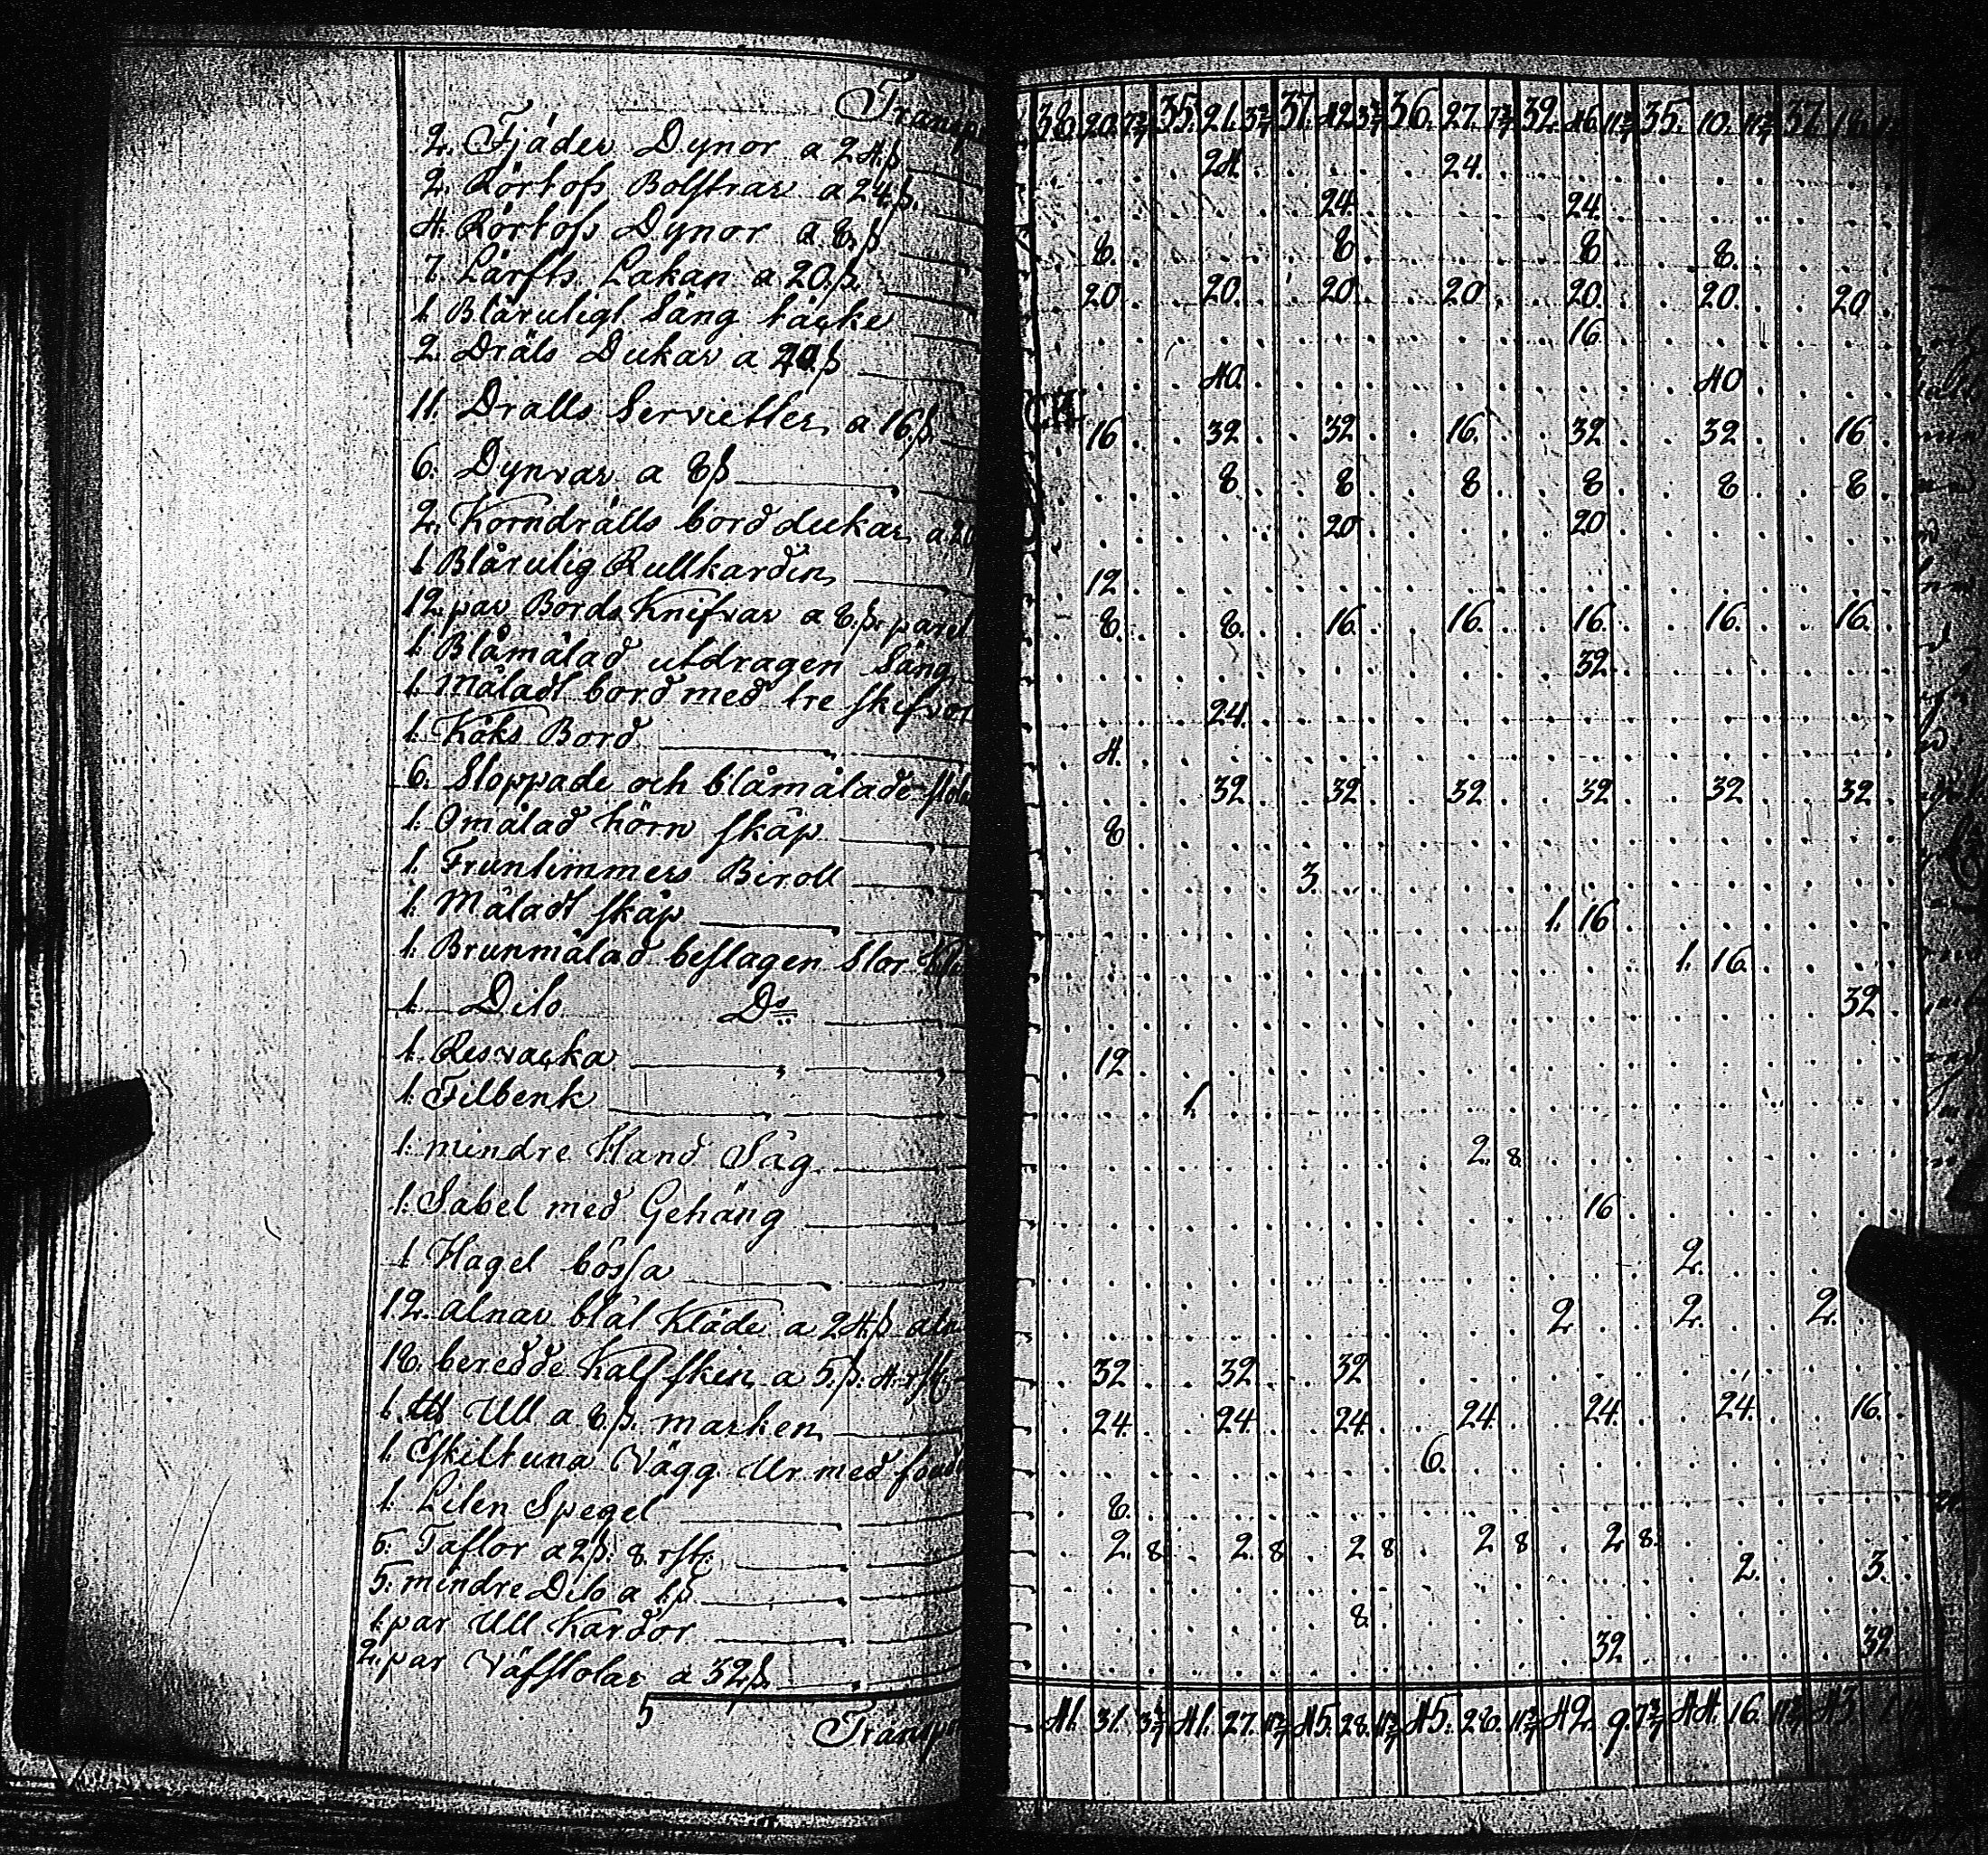 Transp 38. 20. 7 2/7 35. 21. 3 2/7 37. 42. 3 2/7 36. 27. 7 2/7 32. 46. 11 2/7 35. 10. 11 2/7 37. 18.
2. Fjäder Dynor a 24 ß 24. 24.
2. Rörtofs Bolstrar a 24. ß. 24. 24.
4. Rörtofs Dynor a 8. ß 8. 8 8 8.
7. Lärfts Lakan a 20. ß. 20 20. 20 20 20. 20. 20
1. Blåruligt Säng täcke 16.
2. Dräls Dukar a 40 ß 40. 40
11. Dralls Servietter a 16. ß 16 32 32 16. 32 32 16
6. Dynvar a 8 ß 8 8 8 8 8 8
2. Korndrälls bord dukar a 20 20 20
1. Blårulig Rullkardin 12
12. par Bords Knifvar a 8. ß. paret 8. 8. 16. 16. 16. 16. 16.
1. Blåmålad utdragen Säng 32.
1. Måladt bord med tre skifvor 24.
1. Köks Bord 4.
6. Stoppade och blåmålade stolar 32 32 32 32 32 32
1. Omålad hörn skåp 8
1. Fruntimmers Biroll 3.
1. Måladt skåp 1. 16
1. Brunmålad beslagen Stor 1. 16
1. Dito Do 32
1. Resväcka 12
1. Filbenk 1.
1. mindre Hand Såg 2. 8
1. Sabel med Gehäng 16
1. Hagel bössa 2.
12. alnar blåt Kläde a 24. ß aln 2 2. 2.
18. beredde Kalfskin a 5. ß. 4. rst 32 32 32
1. Ull a 8 ß. marken 24. 24 24. 24. 24. 24. 16.
1. Eskiltuna Vägg Ur med 6.
1. Liten Spegel 8.
5. Taflor a 2 ß. 8. rst. 2. 8. 2. 8 2 8 2 8 2 8.
5. mindre Dito a 1. ß 2. 3.
1. par Ull Kardor 8.
2. par Väfstolar a 32 ß. 32 32
5
Transp 41. 31. 3 2/7 41. 27. 11 2/7 45. 28. 11 2/7 45. 28. 11 2/7 42. 9. 7 2/7 44. 16. 11 2/7 43